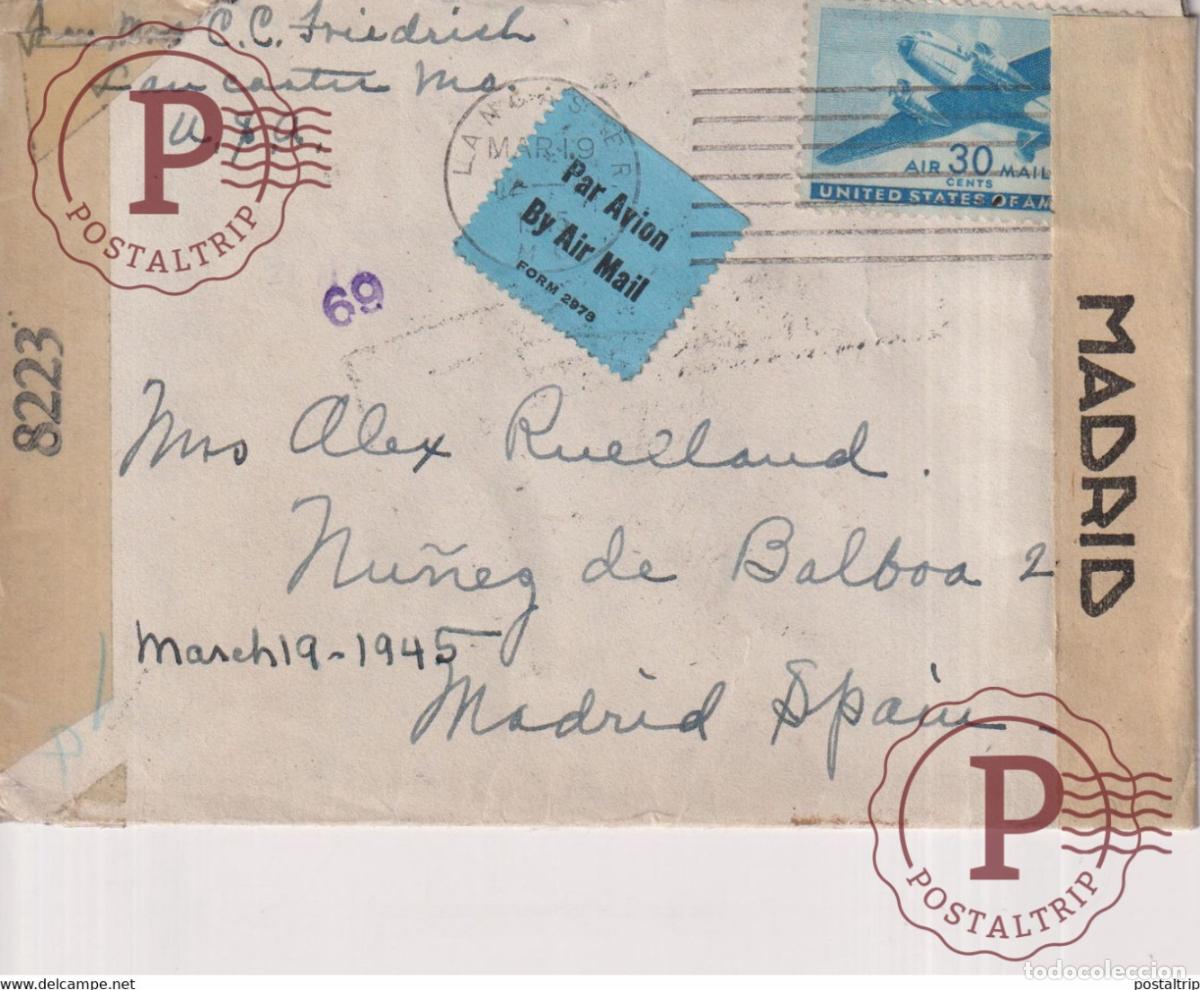 C. C. Friedrich
Lancaster Mo.
U.S.A.
P
POSTALTRIP
LANCASTER
MAR 19
MO
Par Avion
By Air Mail
FORM 2978
AIR 30 MAIL
CENTS
UNITED STATES OF AM
69
8223
MADRID
Mrs Alex Ruelland.
Nuñez de Balboa 2
March 19-1945
Madrid Spain
P
POSTALTRIP
todocoleccion
www.delcampe.net
postaltrip